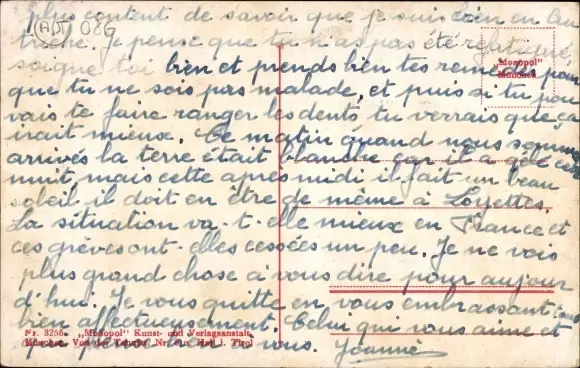 plus content de savoir que je suis loin en Au
triche. Je pense que tu n'as pas été refatigué,
soigne toi bien et prends bien tes remèdes pour
que tu ne sois pas malade, et puis si tu pou
vais te faire ranger les dents tu verrais que ça
irait mieux. Ce matin quand nous sommes
arrivés la terre était blanche car il a gelé cette
nuit, mais cette après midi il fait un beau
soleil il doit en être de même à Loyettes.
La situation va-t-elle mieux en France et
ces grèves ont-elles cessées un peu. Je ne vois
plus grand chose à vous dire pour aujour
d'hui. Je vous quitte en vous embrassant tous
bien affectueusement. Celui qui vous aime et
qui pense à vous. Joanné
ADT 086
"Monopol"
München
Nr. 3256. "Monopol" Kunst- und Verlagsanstalt,
München. Von der Tiroler Hall i. Tirol